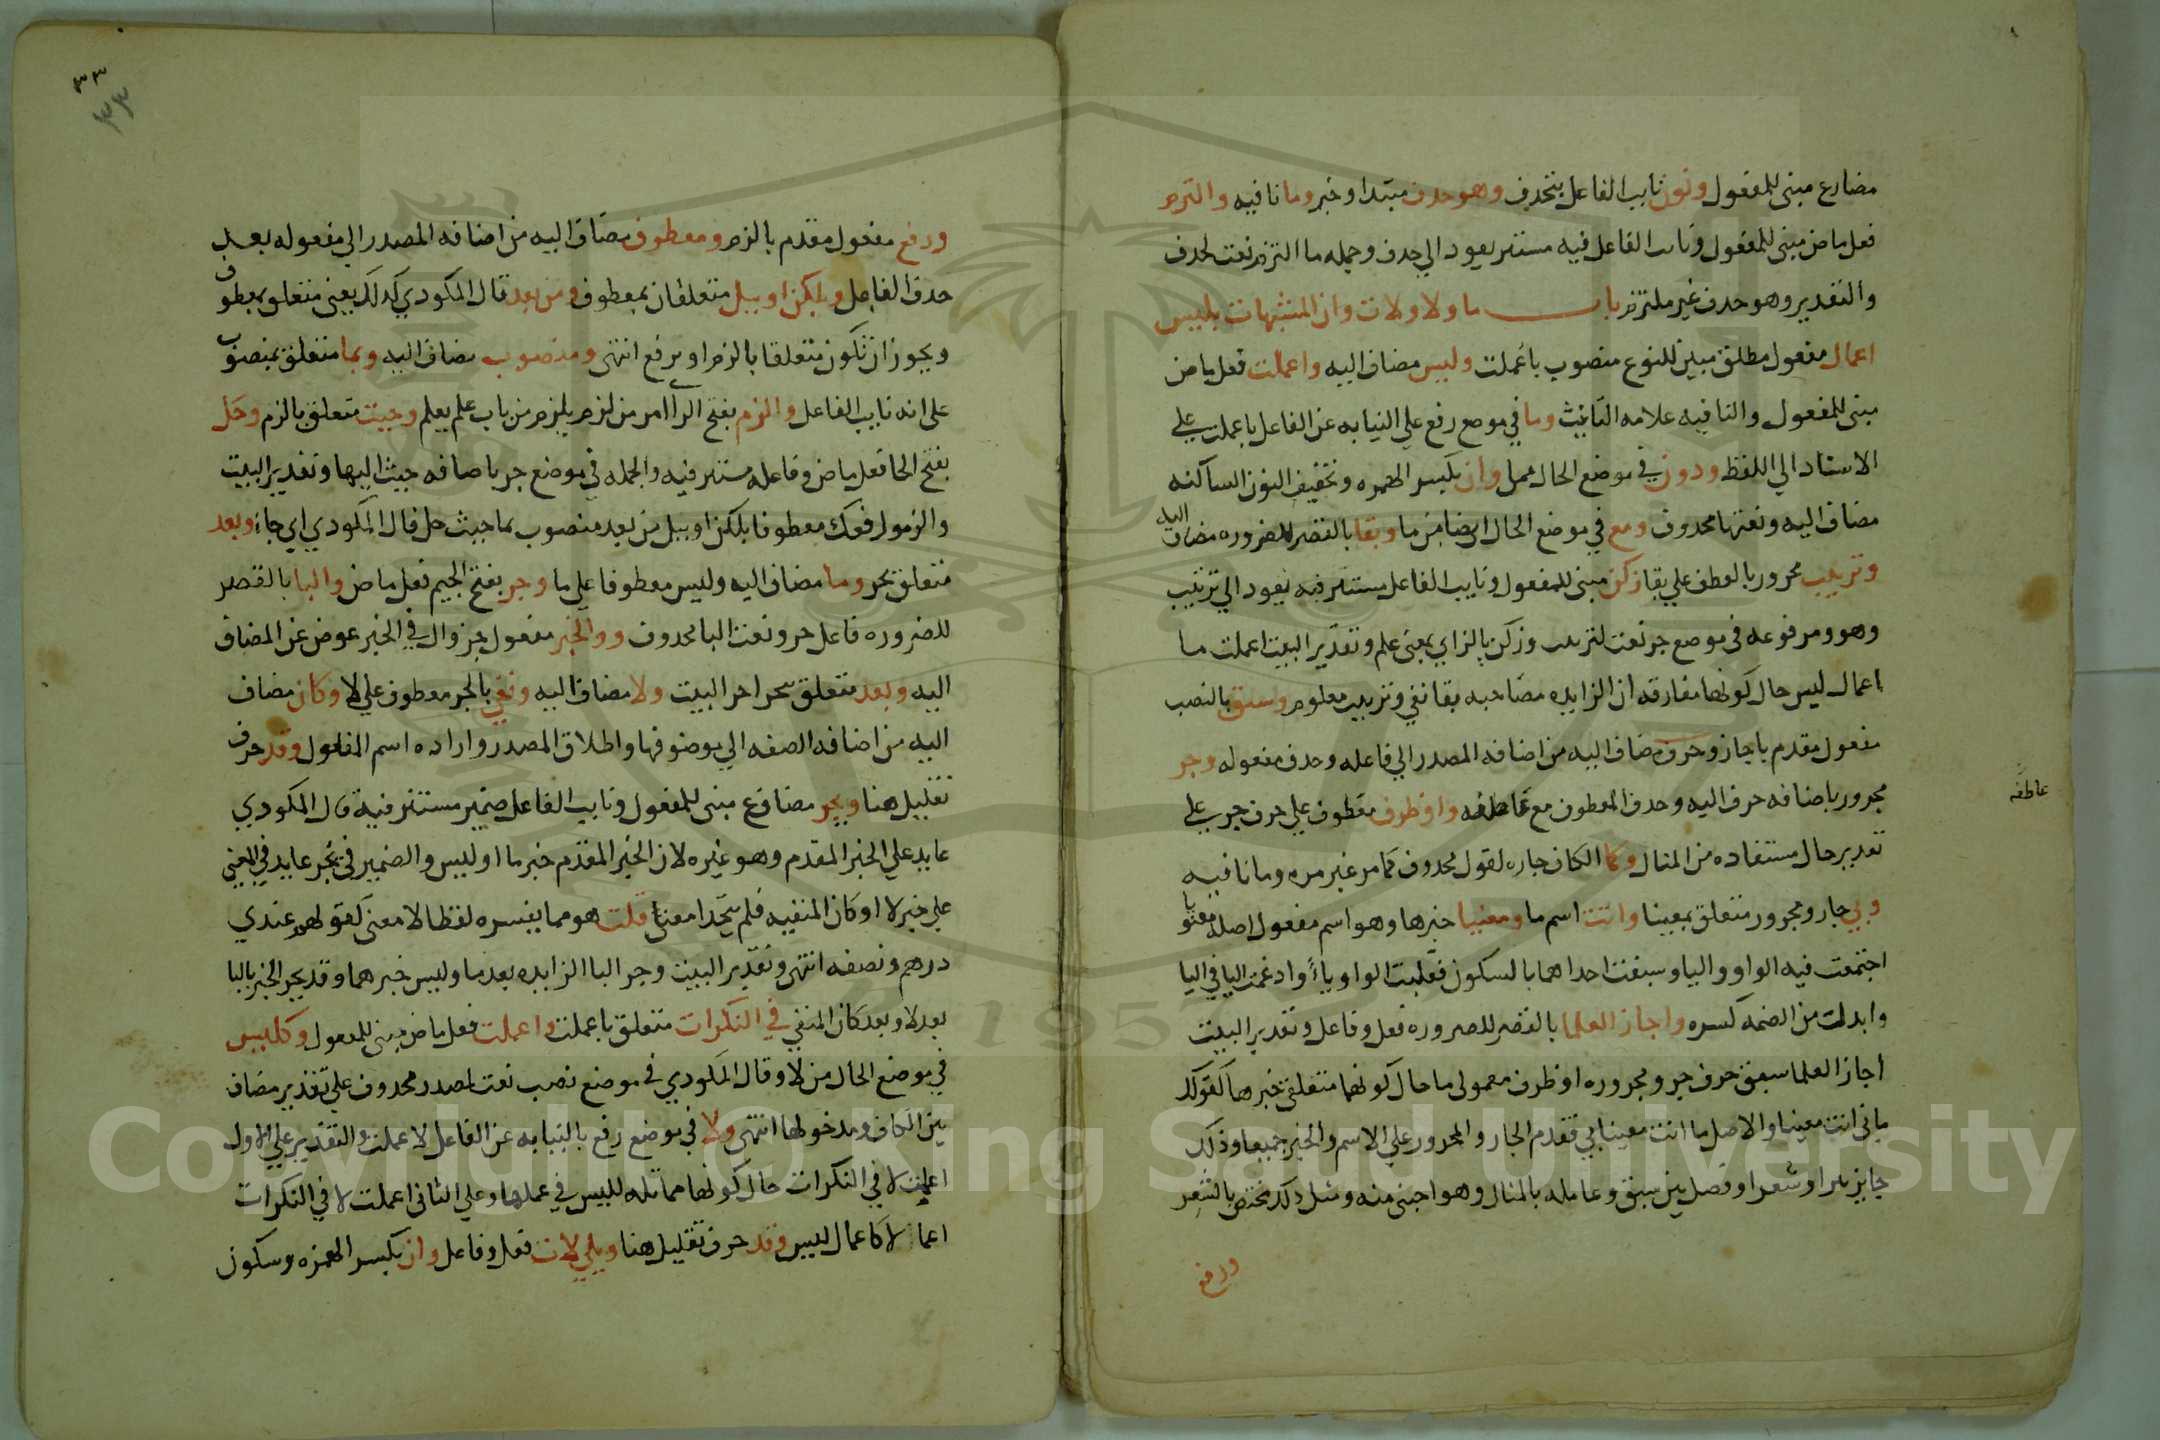 مضارع مبنى للمفعول ونون نايب الفاعل بتحذف وهو حذف مبتدا وخبر وما نافيه والتزم
فعل ماض مبنى للمفعول ونايب الفاعل فيه مستتر يعود الي حذف وجمله ما التزم نعت لحذف
والتقدير وهو حذف غير ملتزم باب ما ولا ولات وان المشبهات بليس
اعمال مفعول مطلق مبين للنوع منصوب باعملت وليس مضاف اليه واعملت فعل ماض
مبنى للمفعول والتا فيه علامه التانيث وما في موضع رفع علي النيابه عن الفاعل باعملت علي
الاسناد الي اللفظ ودون في موضع الحال من ما وان بكسر الهمزه وتخفيف النون الساكنه
مضاف اليه ونعتها محذوف ومع في موضع الحال ايضا من ما وبقا بالقصر للضروره مضاف اليه
وترتيب مجرور بالعطف علي بقا زكن مبنى للمفعول ونايب الفاعل مستتر فيه يعود الي ترتيب
وهو ومرفوعه في موضع جر نعت لترتيب وزكن بالزاي بمعنى علم وتقدير البيت اعملت ما
اعمال ليس حال كونها مفارقه ان الزايده مصاحبه بقا نفي وترتيب معلوم وسبق بالنصب
مفعول مقدم باجاز وحرف مضاف اليه من اضافه المصدر الي فاعله وحذف مفعوله وجر
مجرور باضافه حرف اليه وحذف المعطوف مع عاطفه واو ظرف معطوف علي حرف جر علي
عاطفه
تقدير حال مستفاده من المثال وكما الكاف جاره لقول محذوف كما مر غير مره وما نافيه
وبي جار ومجرور متعلق بمعنيا وانت اسم ما ومعنيا خبرها وهو اسم مفعول اصله معنويا
اجتمعت فيه الواو واليا وسبقت احداهما بالسكون فقلبت الواو ياءً وادغمت اليا في اليا
وابدلت من الضمه كسره واجاز العلما بالقصر للضروره فعل وفاعل وتقدير البيت
اجاز العلما سبق حرف جر ومجروره او ظرف معمولى ما حال كونهما متعلقى خبرها كقولك
ما بى انت معنيا والاصل ما انت معنيا بي فقدم الجار والمجرور علي الاسم والخبر جميعا وذلك
جايز نثرا وشعرا وفصل بين سبق وعامله بالمثال وهو اجنبى منه ومثل ذلك مختص بالشعر
ورفع
٣٣
٣٣
ورفع مفعول مقدم بالزم ومعطوف مضاف اليه من اضافه المصدر الي مفعوله بعد
حذف الفاعل وبلكن او ببل متعلقان بمعطوف ومن بعد قال المكودي كذلك يعنى متعلق بمعطوف
ويجوز ان تكون متعلقا بالزم او برفع انتهى ومنصوب مضاف اليه وبما متعلق بمنصوب
على انه نايب الفاعل والزم بفتح الزا امر من لزم يلزم من باب علم يعلم وحيث متعلق بالزم وحل
بفتح الحا فعل ماض وفاعله مستتر فيه والجمله في موضع جر باضافه حيث اليها وتقدير البيت
والزم رفعك معطوفا بلكن او ببل من بعد منصوب بما حيث حل قال المكودي اي جاء وبعد
متعلق بجر وما مضاف اليه وليس معطوفا علي ما وجر بفتح الجيم فعل ماض والبا بالقصر
للضروره فاعل جر ونعت البا محذوف ووالخبر مفعول جر وال في الخبر عوض عن المضاف
اليه وبعد متعلق بيجر اخر البيت ولا مضاف اليه ونفي بالجر معطوف علي لا وكان مضاف
اليه من اضافه الصفه الي موضوفها واطلاق المصدر واراده اسم المفعول وقد حرف
تقليل هنا ويجر مضارع مبنى للمفعول ونايب الفاعل ضمير مستتر فيه قال المكودي
عايد علي الخبر المقدم وهو غيره لان الخبر المقدم خبر ما او ليس والضمير في يجر عايد في المعني
علي خبر لا او كان المنفيه فلم يتحدا معنى قلت هو مما يفسره لفظا لا معنى كقولهم عندي
درهم ونصفه انتهى وتقدير البيت وجر البا الزايده بعد ما وليس خبرهما وقد يجر الخبر بالبا
بعد لا وبعد كان المنفي في النكرات متعلق باعملت واعملت فعل ماض مبنى للمفعول وكليس
في موضع الحال من لا وقال المكودي في موضع نصب نعت لمصدر محذوف علي تقدير مضاف
بين الكاف ومدخولها انتهى ولا في موضع رفع بالنيابه عن الفاعل لاعملت والتقدير علي الاول
اعملت لا في النكرات حال كونها مماثله لليس في عملها وعلي الثانى اعملت لا في النكرات
اعمالا كاعمال ليس وقد حرف تقليل هنا ويلي لات فعل وفاعل وان بكسر الهمزه وسكون